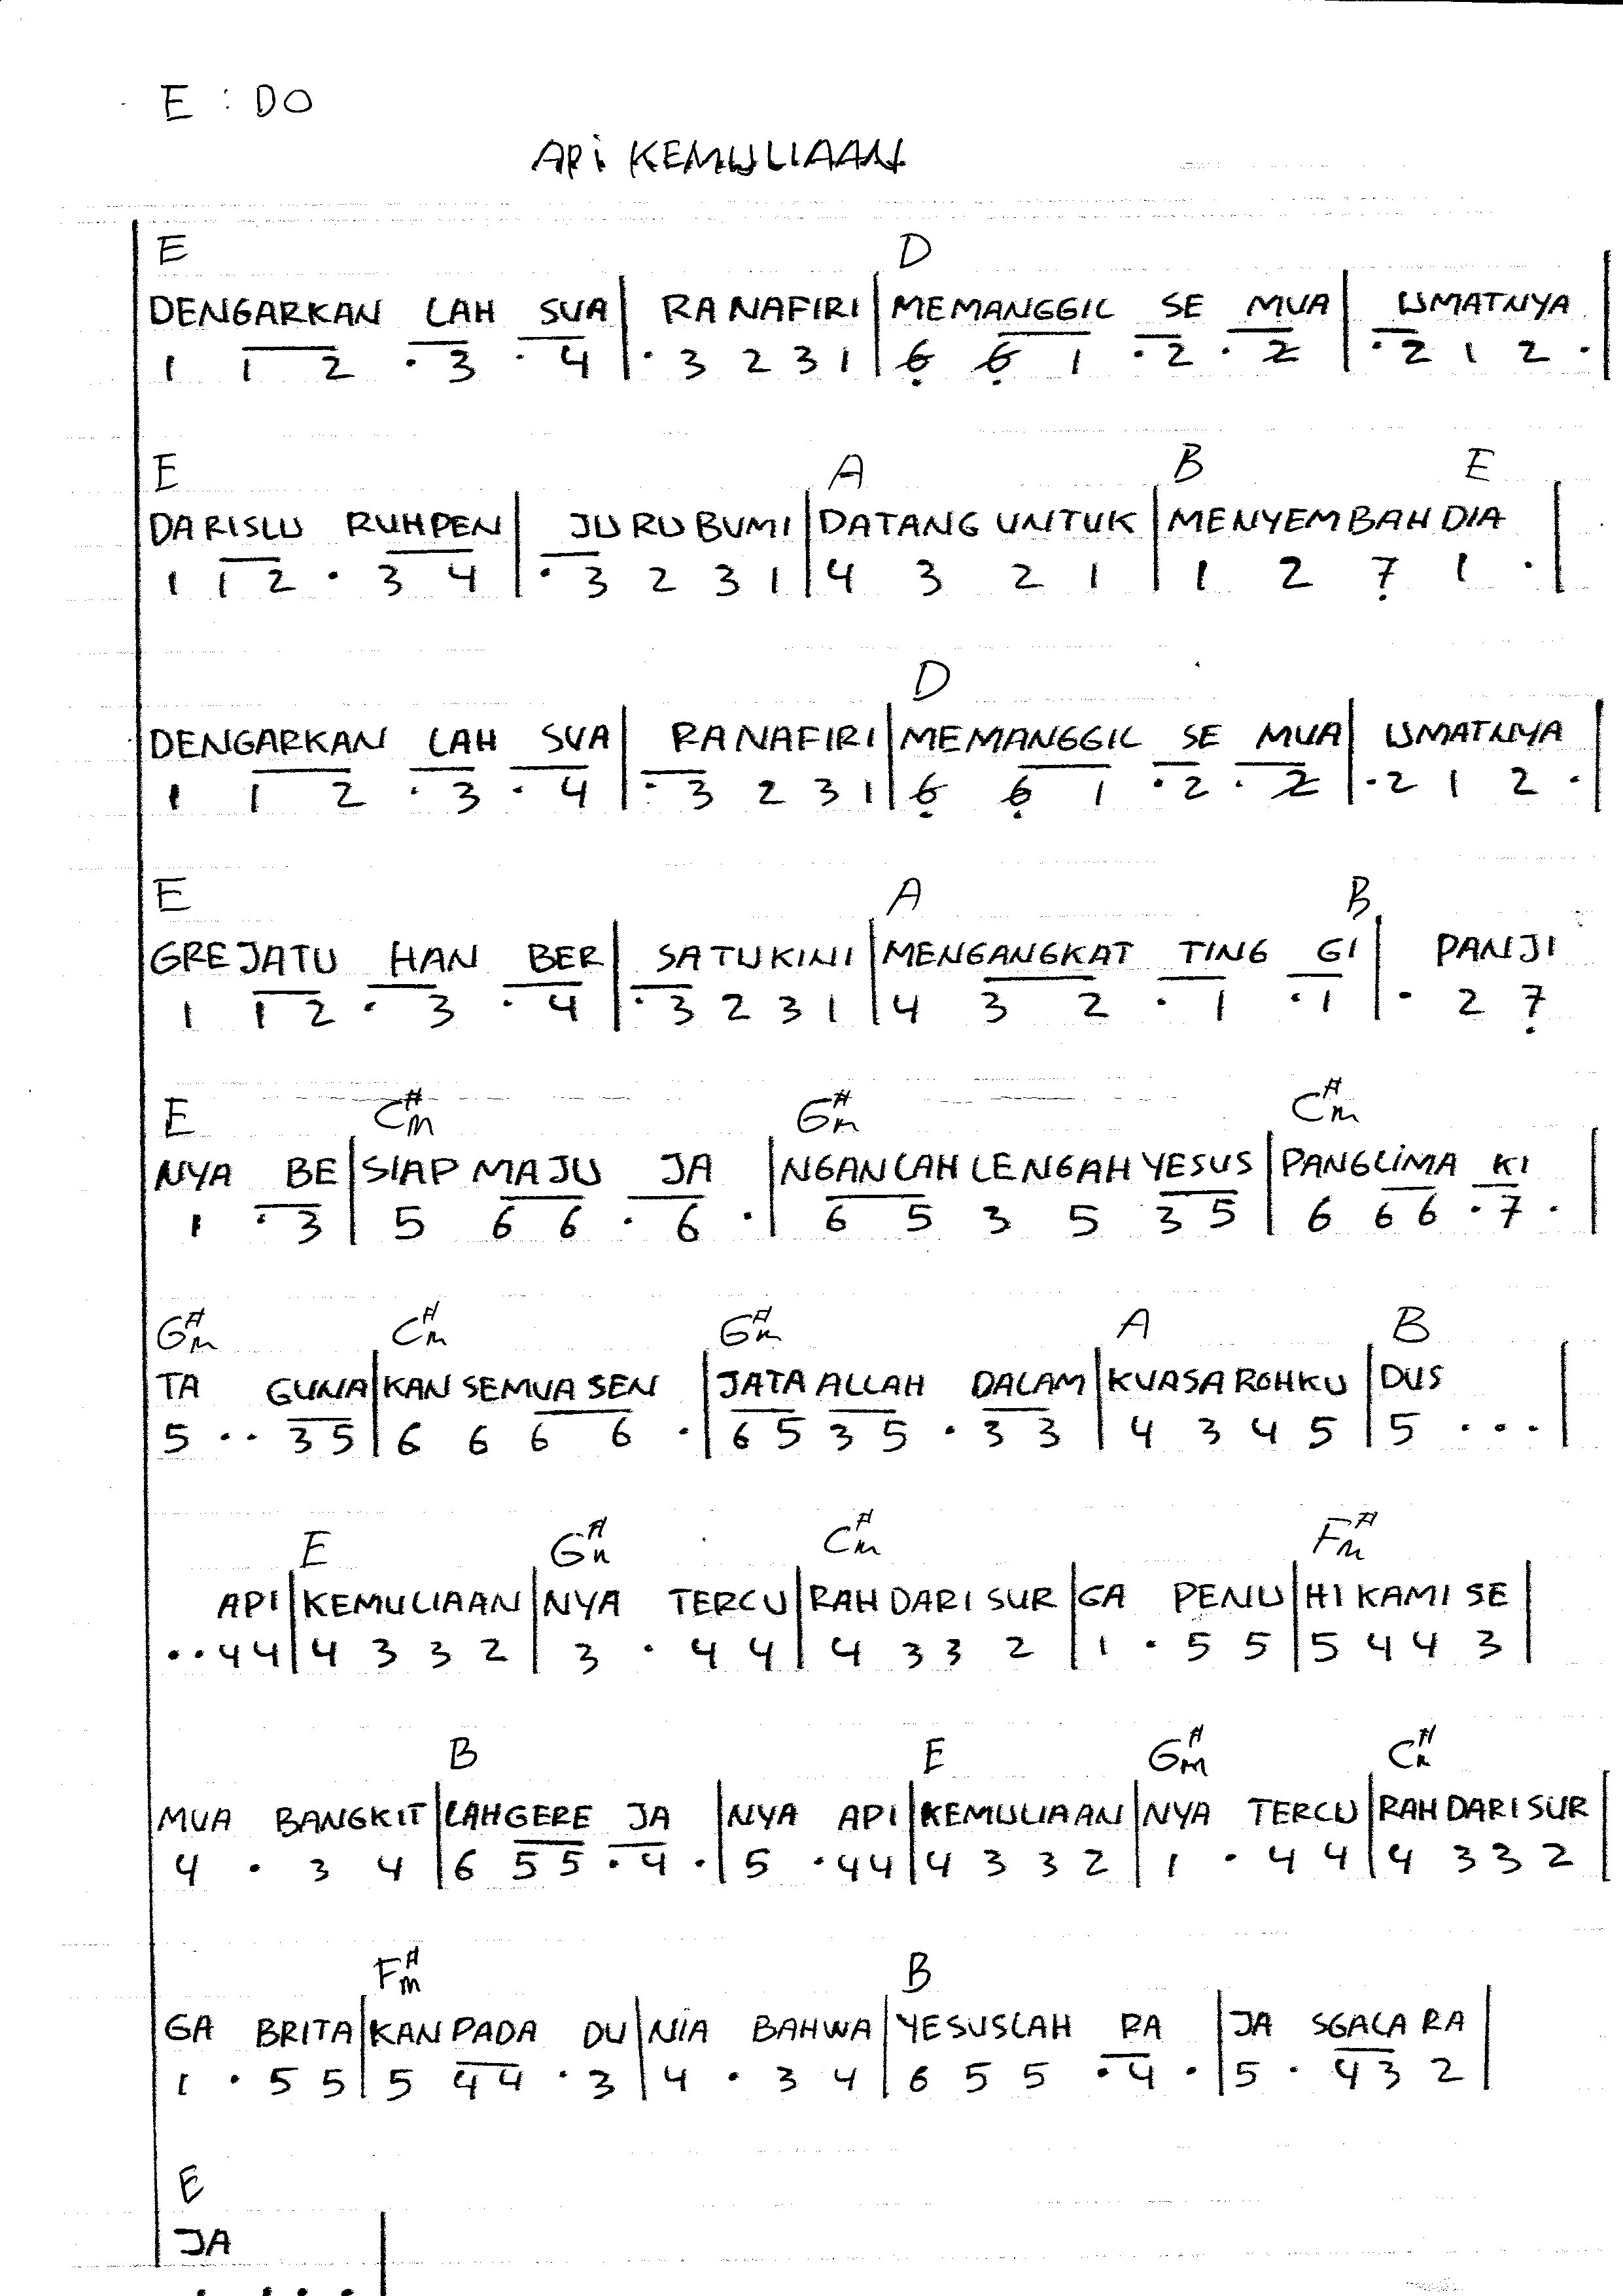 E : DO
API KEMULIAAN
E D
DENGARKAN LAH SUA | RA NAFIRI | MEMANGGIL SE MUA | UMATNYA
1 1 2 . 3 . 4 | . 3 2 3 1 | 6 6 1 . 2 . 2 | . 2 1 2 . |
E A B E
DARISLU RUHPEN | JURU BUMI | DATANG UNTUK | MENYEMBAH DIA
1 1 2 . 3 4 | . 3 2 3 1 | 4 3 2 1 | 1 2 7 1 . |
D
DENGARKAN LAH SUA | RA NAFIRI | MEMANGGIL SE MUA | UMATNYA
1 1 2 . 3 . 4 | . 3 2 3 1 | 6 6 1 . 2 . 2 | . 2 1 2 . |
E A B
GREJATU HAN BER | SATUKINI | MENGANGKAT TING GI | PANJI
1 1 2 . 3 . 4 | . 3 2 3 1 | 4 3 2 . 1 . 1 | . 2 7
E C#m G#m C#m
NYA BE | SIAP MAJU JA | NGANLAH LENGAH YESUS | PANGLIMA KI
1 . 3 | 5 6 6 . 6 . | 6 5 3 5 3 5 | 6 6 6 . 7 . |
G#m C#m G#m A B
TA GUNA | KAN SEMUA SEN | JATA ALLAH DALAM | KUASA ROHKU | DUS
5 . . 3 5 | 6 6 6 6 . | 6 5 3 5 . 3 3 | 4 3 4 5 | 5 . . . |
E G#m C#m F#m
API | KEMULIAAN | NYA TERCU | RAH DARI SUR | GA PENU | HI KAMI SE |
. . 4 4 | 4 3 3 2 | 3 . 4 4 | 4 3 3 2 | 1 . 5 5 | 5 4 4 3 |
B E G#m C#m
MUA BANGKIT | LAH GERE JA | NYA API | KEMULIAAN | NYA TERCU | RAH DARI SUR
4 . 3 4 | 6 5 5 . 4 . | 5 . 4 4 | 4 3 3 2 | 1 . 4 4 | 4 3 3 2 |
F#m B
GA BRITA | KAN PADA DU | NIA BAHWA | YESUSLAH RA | JA SGALA RA |
1 . 5 5 | 5 4 4 . 3 | 4 . 3 4 | 6 5 5 . 4 . | 5 . 4 3 2 |
E
JA |